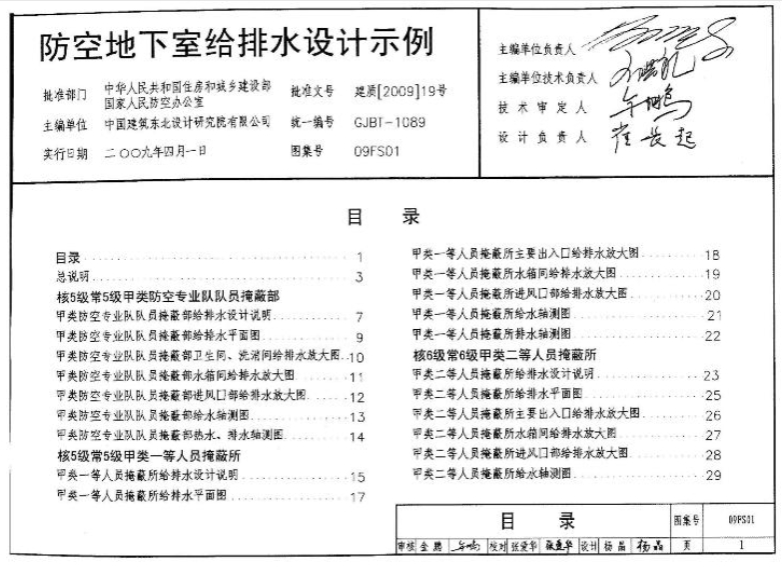 防空地下室给排水设计示例
批准部门 中华人民共和国住房和城乡建设部
国家人民防空办公室
批准文号 建质[2009]19号
主编单位 中国建筑东北设计研究院有限公司 统一编号 GJBT-1089
实行日期 二〇〇九年四月一日 图集号 09FS01
主编单位负责人
主编单位技术负责人
技术审定人
设计负责人 崔长起
目 录
目录 1
总说明 3
核5级常5级甲类防空专业队队员掩蔽部
甲类防空专业队队员掩蔽部给排水设计说明 7
甲类防空专业队队员掩蔽部给排水平面图 9
甲类防空专业队队员掩蔽部卫生间、洗消间给排水放大图 10
甲类防空专业队队员掩蔽部水箱间给排水放大图 11
甲类防空专业队队员掩蔽部进风口部给排水放大图 12
甲类防空专业队队员掩蔽部给水轴测图 13
甲类防空专业队队员掩蔽部热水、排水轴测图 14
核5级常5级甲类一等人员掩蔽所
甲类一等人员掩蔽所给排水设计说明 15
甲类一等人员掩蔽所给排水平面图 17
甲类一等人员掩蔽所主要出入口给排水放大图 18
甲类一等人员掩蔽所水箱间给排水放大图 19
甲类一等人员掩蔽所进风口部给排水放大图 20
甲类一等人员掩蔽所给水轴测图 21
甲类一等人员掩蔽所排水轴测图 22
核6级常6级甲类二等人员掩蔽所
甲类二等人员掩蔽所给排水设计说明 23
甲类二等人员掩蔽所给排水平面图 25
甲类二等人员掩蔽所主要出入口给排水放大图 26
甲类二等人员掩蔽所水箱间给排水放大图 27
甲类二等人员掩蔽所进风口部给排水放大图 28
甲类二等人员掩蔽所给水轴测图 29
目 录 图集号 09FS01
审核 金鹏 校对 张爱华 张爱华 设计 杨晶 杨晶 页 1